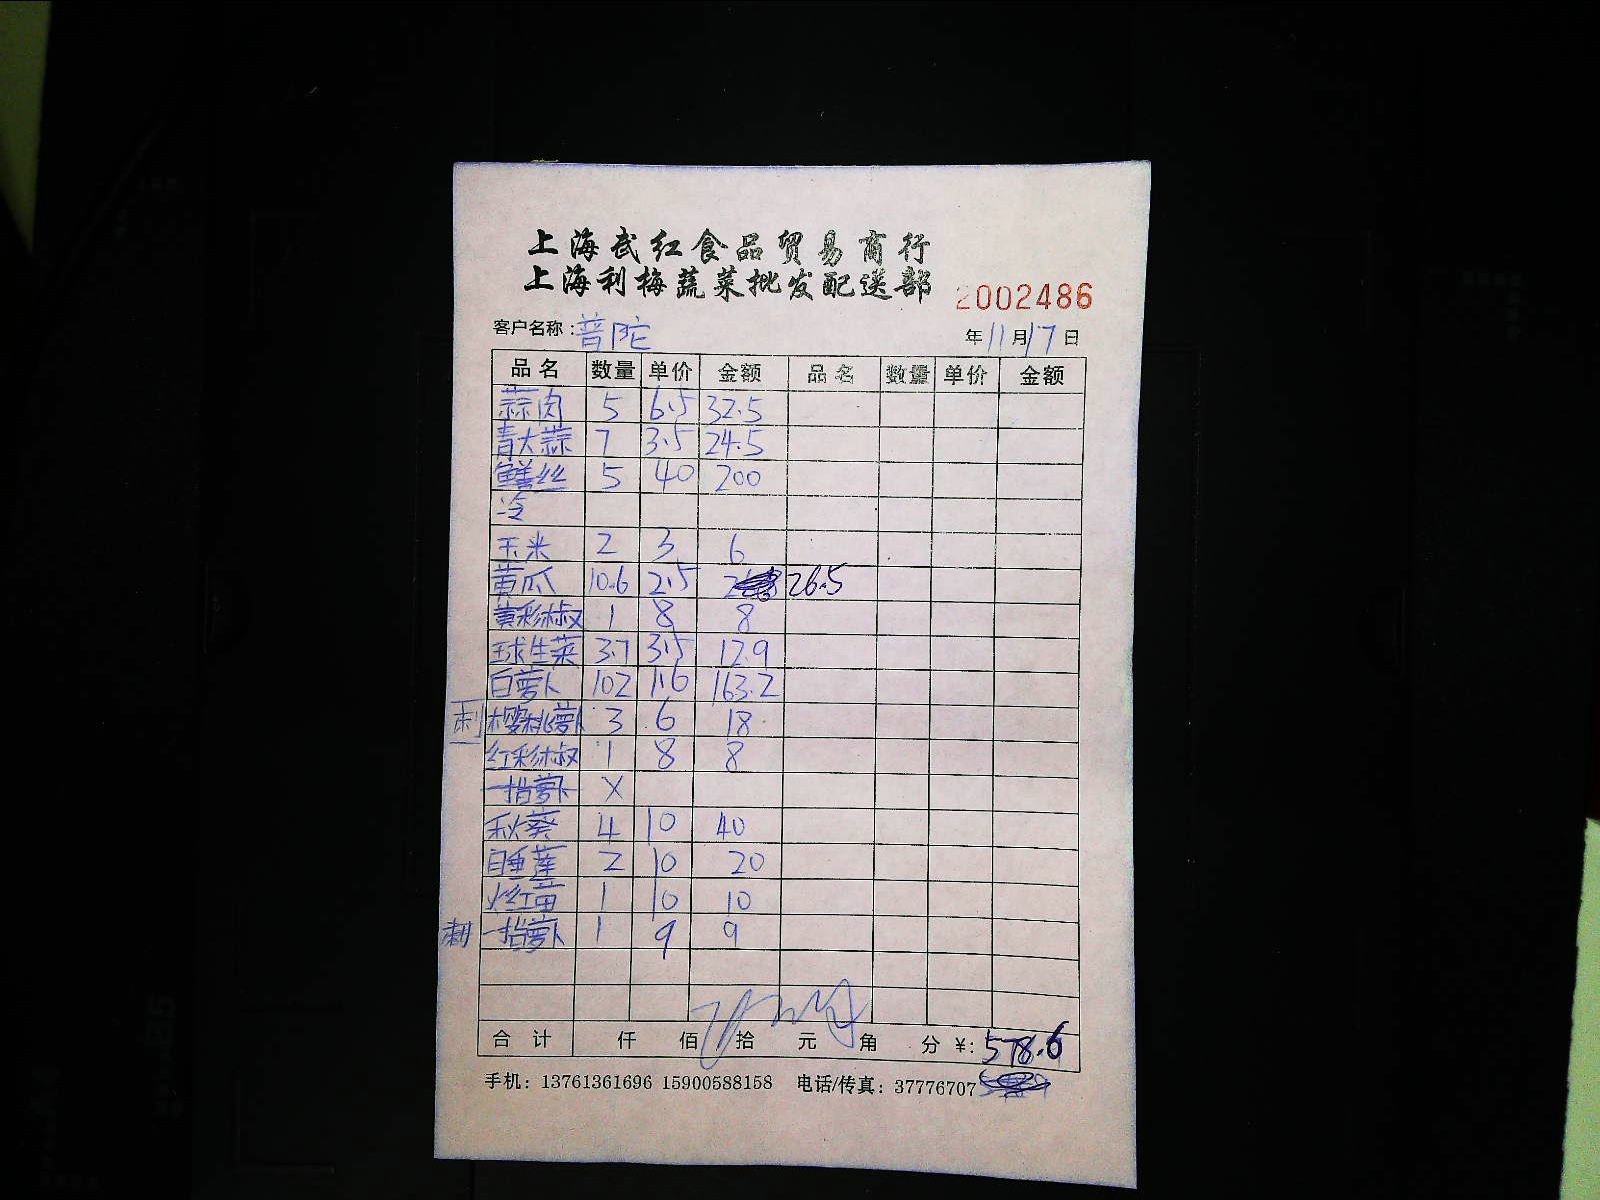 上海武红食品贸易商行
上海利梅蔬菜批发配送部
2002486
客户名称:普陀 年11月17日
品名 数量 单价 金额 品名 数量 单价 金额
蒜肉 5 6.5 32.5
青大蒜 7 3.5 24.5
鳝丝 5 40 200
冷
玉米 2 3 6
黄瓜 10.6 2.5 26.5
黄彩椒 1 8 8
球生菜 3.7 3.5 12.9
白萝卜 102 1.6 163.2
樱桃萝卜 3 6 18
红彩椒 1 8 8
一指萝卜 X
秋葵 4 10 40
白睡莲 2 10 20
火红苗 1 10 10
一指萝卜 1 9 9
合计 仟 佰 拾 元 角 分 ¥:578.6
手机:13761361696 15900588158 电话/传真:37776707